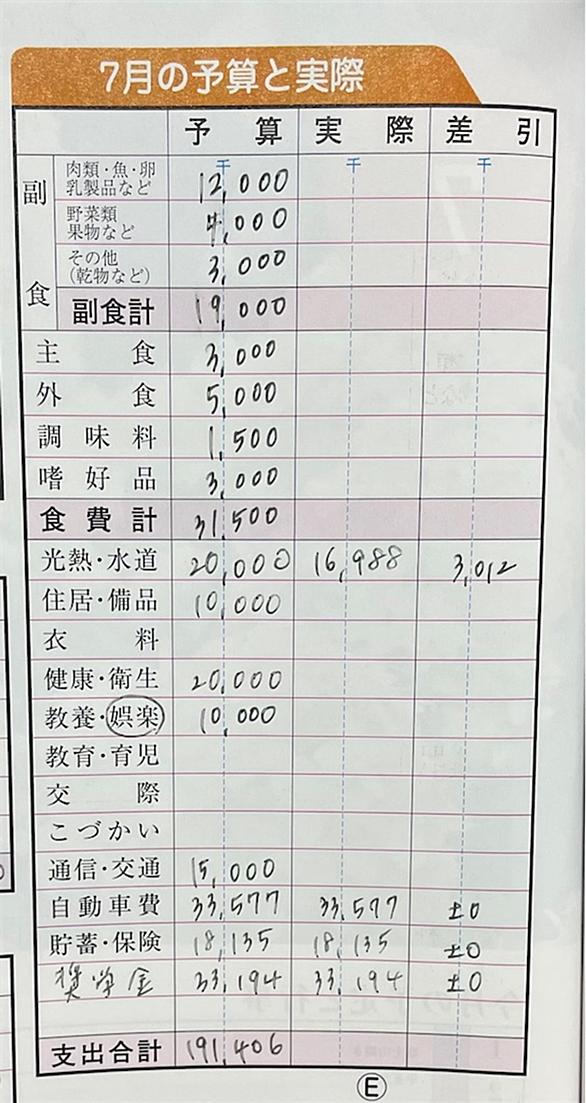 7月の予算と実際
予算 実際 差引
千 千 千
副食
肉類・魚・卵
乳製品など 12,000
野菜類
果物など 4,000
その他
(乾物など) 3,000
副食計 19,000
主食 3,000
外食 5,000
調味料 1,500
嗜好品 3,000
食費計 31,500
光熱・水道 20,000 16,988 3,012
住居・備品 10,000
衣料
健康・衛生 20,000
教養・娯楽 10,000
教育・育児
交際
こづかい
通信・交通 15,000
自動車費 33,577 33,577 ±0
貯蓄・保険 18,135 18,135 ±0
奨学金 33,194 33,194 ±0
支出合計 191,406
Ⓔ